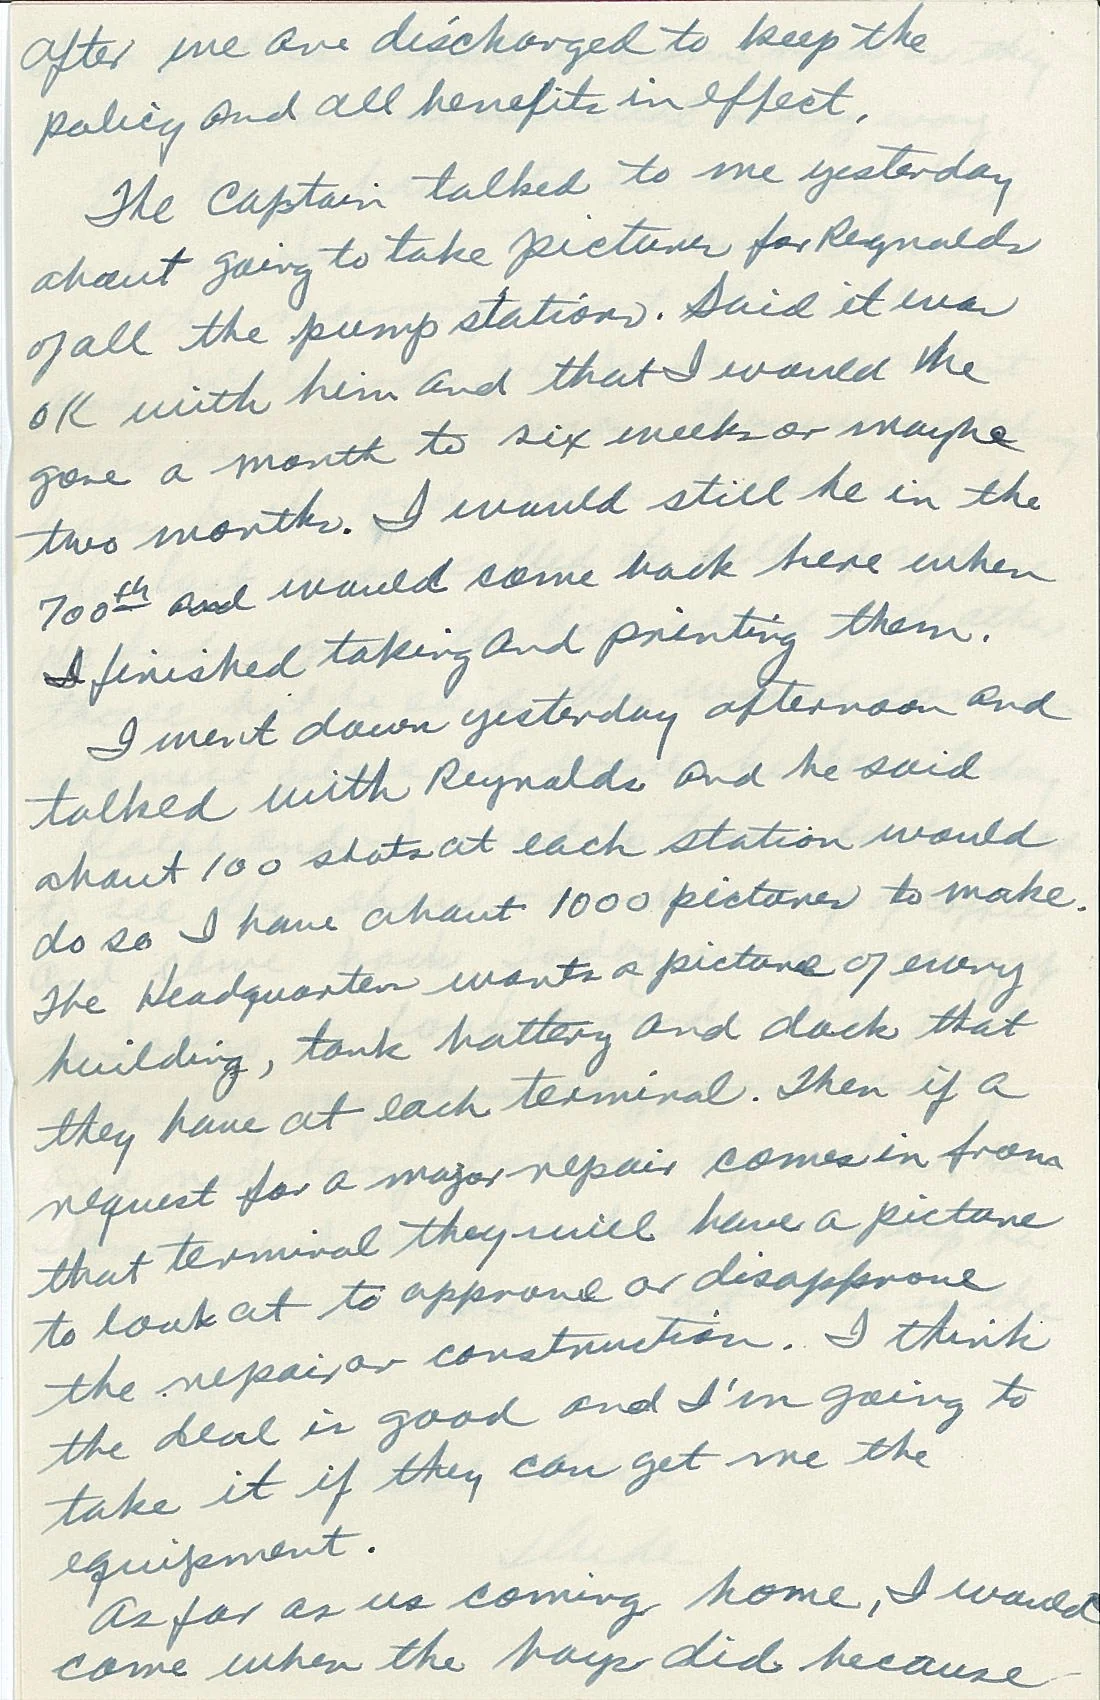 after we are discharged to keep the
policy and all benefits in effect.
The Captain talked to me yesterday
about going to take pictures for Reynolds
of all the pump stations. Said it was
OK with him and that I would be
gone a month to six weeks or maybe
two months. I would still be in the
700th and would come back here when
I finished taking and printing them.
I went down yesterday afternoon and
talked with Reynolds and he said
about 100 shots at each station would
do so I have about 1000 pictures to make.
The Headquarters wants a picture of every
building, tank battery and dock that
they have at each terminal. Then if a
request for a major repair comes in from
that terminal they will have a picture
to look at to approve or disapprove
the repair or construction. I think
the deal is good and I'm going to
take it if they can get me the
equipment.
As far as us coming home, I would
come when the boys did because